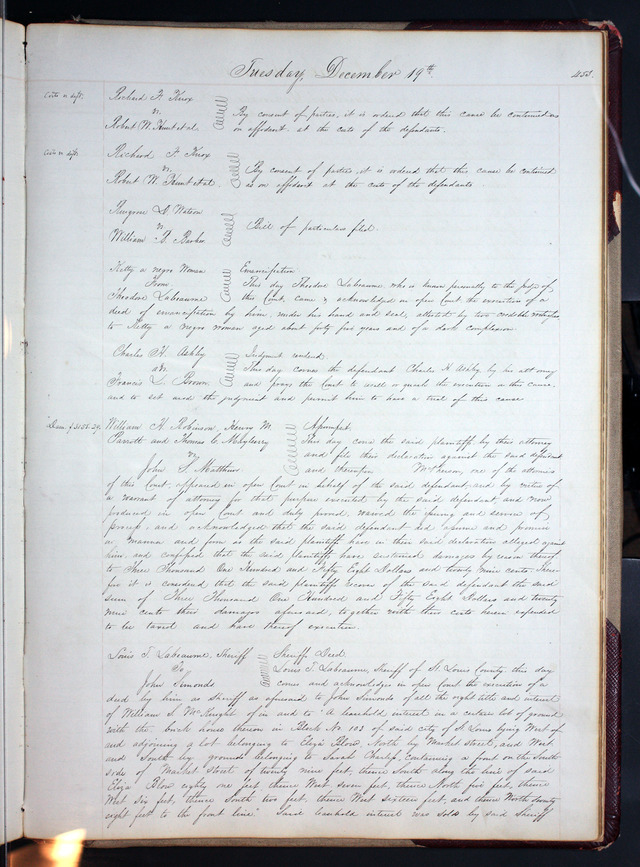 Tuesday, December 19th. 453.
Costs v deft.
Richard F. Knox
vs.
Robert W. Hunt et al.
By consent of parties, it is ordered that this cause be continued as
on affidavit at the costs of the defendants.
Costs v deft.
Richard F. Knox
vs.
Robert W. Hunt et al.
By consent of parties, it is ordered that this cause be continued
as on affidavit at the costs of the defendants
D. Watson
vs.
William B. Barker
Bill of particulars filed.
Kitty a negro Woman
From
Theodore Labeaume
Emancipation
This day Theodore Labeaume, who is known personally to the judge of
this Court, came & acknowledged in open Court the execution of a
deed of emancipation by him, under his hand and seal, attested by two credible witnesses
to Kitty a negro woman aged about forty five years and of a dark complexion.
Charles H. Ashby
ads.
Francis L. Brown.
Judgment rendered.
This day comes the defendant Charles H. Ashby by his attorney
and prays the Court to recall or quash the execution in this cause,
and to set aside the judgment and permit him to have a trial of this cause
Dam. $3158.29.
William H. Robinson, Henry M.
Parrott and Thomas C. Mayberry
vs
John S. Matthews
Assumpsit
This day come the said plaintiffs by their attorney
and file their declaration against the said defendant
and thereupon McPherson, one of the attornies
of this Court, appeared in open Court in behalf of the said defendant, and by virtue of
a warrant of attorney for that purpose executed by the said defendant and now
produced in open Court and duly proved, waived the issuing and service of
process, and acknowledged that the said defendant did assume and promise
in manner and form as the said plaintiffs have in their said declaration alleged against
him, and confessed that the said plaintiffs have sustained damages by reason thereof
to Three Thousand One Hundred and Fifty Eight Dollars and twenty nine cents. There-
fore it is considered that the said plaintiffs recover of the said defendant the said
sum of Three Thousand One Hundred and Fifty Eight Dollars and twenty
nine cents their damages aforesaid, together with their costs herein expended
to be taxed and have thereof execution.
Louis T. Labeaume, Sheriff
To
John Simonds
Sheriffs Deed
Louis T. Labeaume, Sheriff of St. Louis County this day
comes and acknowledges in open Court the execution of a
deed by him as sheriff as aforesaid to John Simonds of all the right title and interest
of William S. McKnight of in and to "A leasehold interest in a certain lot of ground
with the brick house thereon in Block No. 103 of said city of St. Louis lying West of
and adjoining a lot belonging to Eliza Blow, North by Market Street, and West
and South by grounds belonging to Sarah Charless, containing a front on the South
side of Market Street of twenty nine feet, thence South along the line of said
Eliza Blow eighty one feet thence West seven feet, thence North five feet, thence
West six feet, thence South two feet, thence West sixteen feet, and thence North seventy
eight feet to the front line." Said leasehold interest was sold by said Sheriff